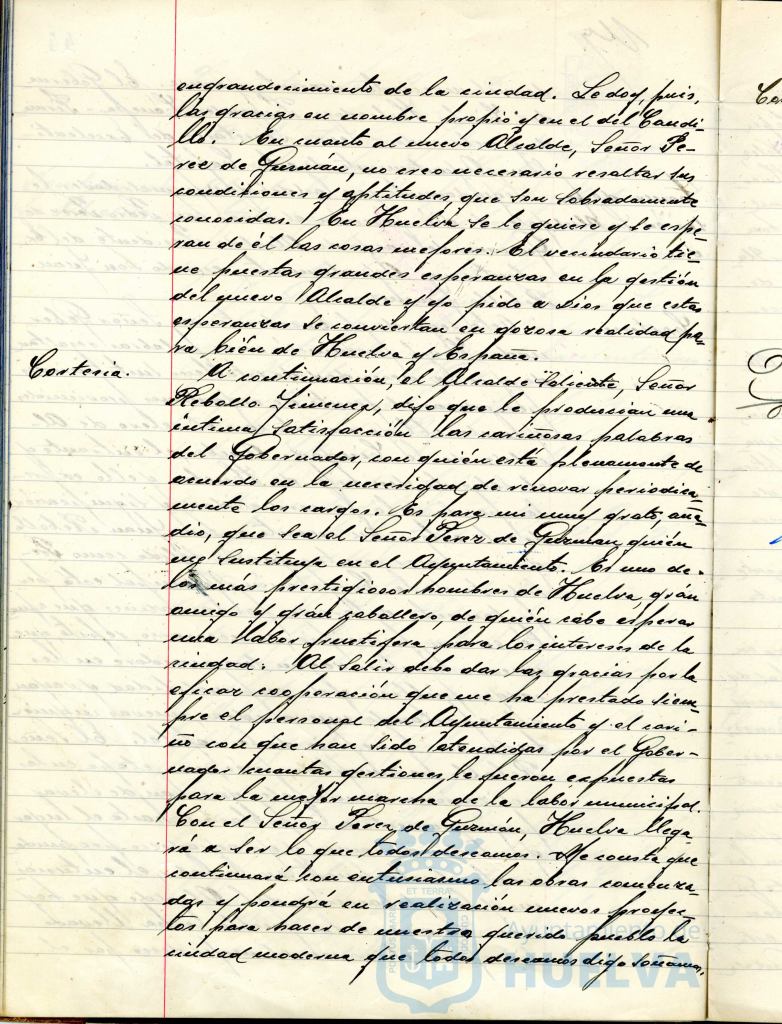 engrandecimiento de la ciudad. Le doy, pués,
las gracias en nombre propio y en el del Caudi-
llo. En cuanto al nuevo Alcalde, Señor Pe-
rez de Guzmán, no creo necesario resaltar sus
condiciones y aptitudes, que son sobradamente
conocidas. En Huelva se le quiere y se espe-
ran de él las cosas mejores. El vecindario tie-
ne puestas grandes esperanzas en la gestión
del nuevo Alcalde y yo pido a Dios que estas
esperanzas se conviertan en gozosa realidad pa-
ra bién de Huelva y España.
Cortesia.
A continuación, el Alcalde saliente, Señor
Rebollo Jimenez, dijo que le producian una
intima satisfacción las cariñosas palabras
del Gobernador, con quién está plenamente de
acuerdo en la necesidad de renovar periodica-
mente los cargos. Es para mi muy grato, aña-
dio, que sea el Señor Perez de Guzman quién
me sustituya en el Ayuntamiento. Es uno de
los más prestigiosos hombres de Huelva, grán
amigo y grán caballero, de quién cabe esperar
una labor fructifera para los intereses de la
ciudad. Al salir debo dar las gracias por la
eficaz cooperación que me ha prestado siem-
pre el personal del Ayuntamiento y el cari-
ño con que han sido atendidas por el Gober-
nador cuantas gestiones le fueron expuestas
para la mejor marcha de la labor municipal.
Con el Señor Perez de Guzmán, Huelva llega-
rá a ser lo que todos deseamos. Me consta que
continuará con entusiasmo las obras comenza-
das y pondrá en realización nuevos proyec-
tos para hacer de nuestro querido pueblo la
ciudad moderna que todos deseamos digo soñamos.
ET TERRA
Ayuntamiento de
HUELVA